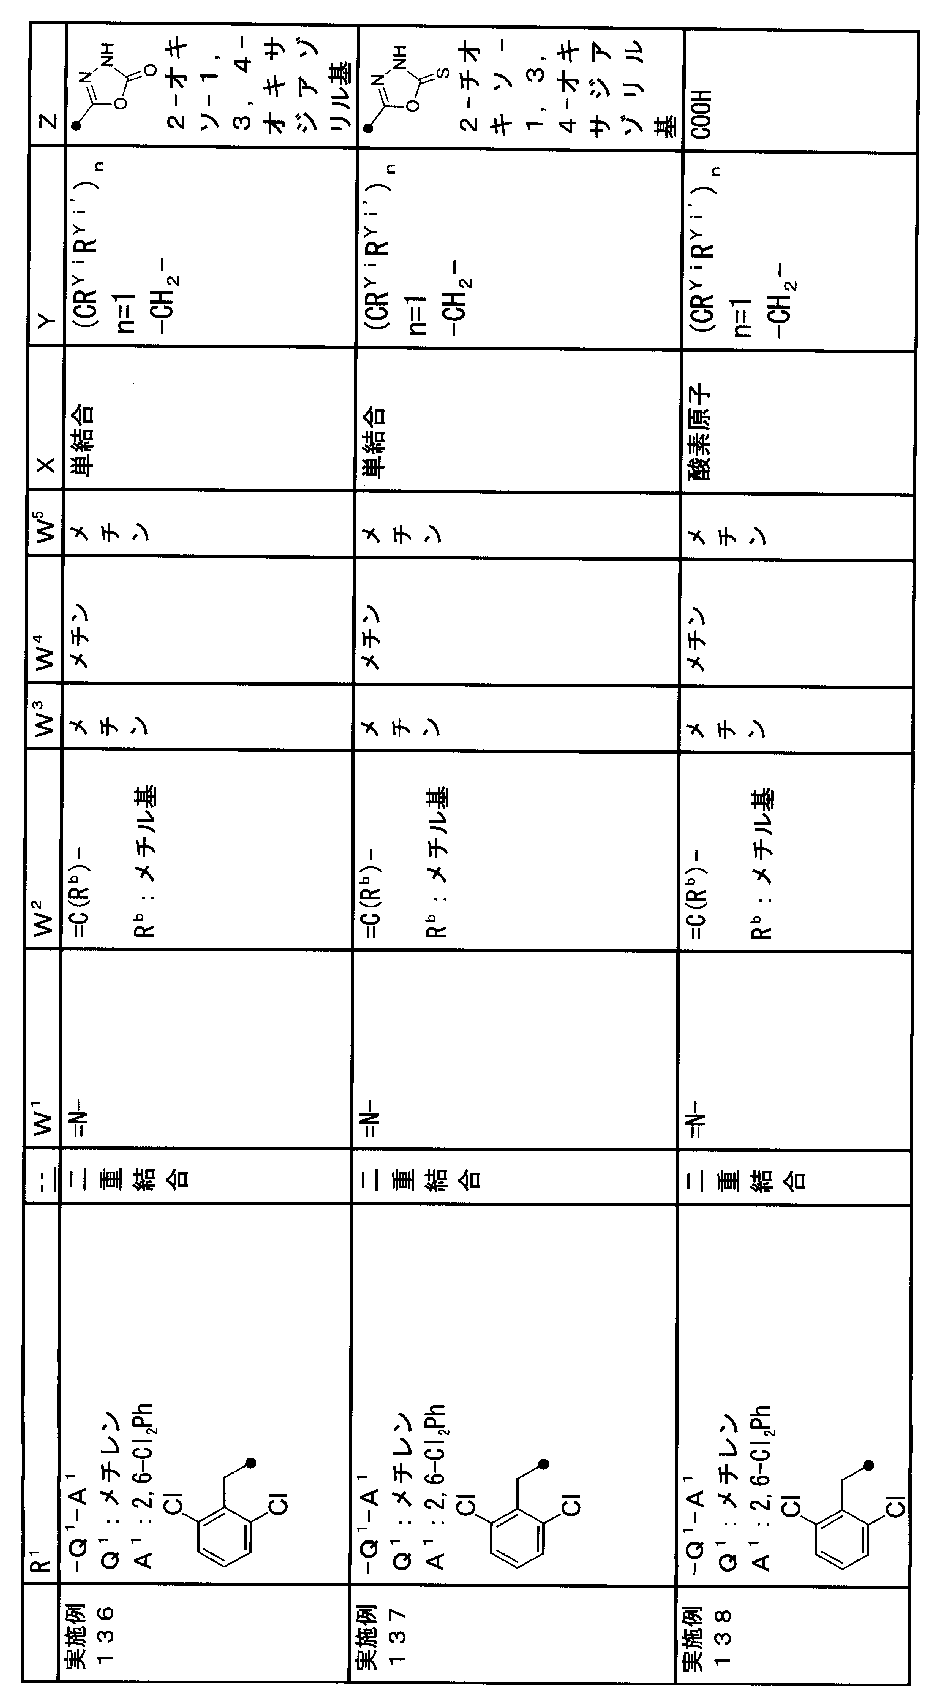 R¹
---
W¹
W²
W³
W⁴
W⁵
X
Y
Z
実施例
136
-Q¹-A¹
Q¹：メチレン
A¹：2,6-Cl₂Ph
Cl
Cl
二重結合
=N-
=C(Rᵇ)-
Rᵇ：メチル基
メチン
メチン
メチン
単結合
(CRʸⁱRʸⁱ')ₙ
n=1
-CH₂-
N
NH
O
O
2-オキ
ソ-1,
3, 4-
オキサ
ジアゾ
リル基
実施例
137
-Q¹-A¹
Q¹：メチレン
A¹：2,6-Cl₂Ph
Cl
Cl
二重結合
=N-
=C(Rᵇ)-
Rᵇ：メチル基
メチン
メチン
メチン
単結合
(CRʸⁱRʸⁱ')ₙ
n=1
-CH₂-
N
NH
O
S
2-チオ
キソ-
1, 3,
4-オキ
サジア
ゾリル
基
実施例
138
-Q¹-A¹
Q¹：メチレン
A¹：2,6-Cl₂Ph
Cl
Cl
二重結合
=N-
=C(Rᵇ)-
Rᵇ：メチル基
メチン
メチン
メチン
酸素原子
(CRʸⁱRʸⁱ')ₙ
n=1
-CH₂-
COOH